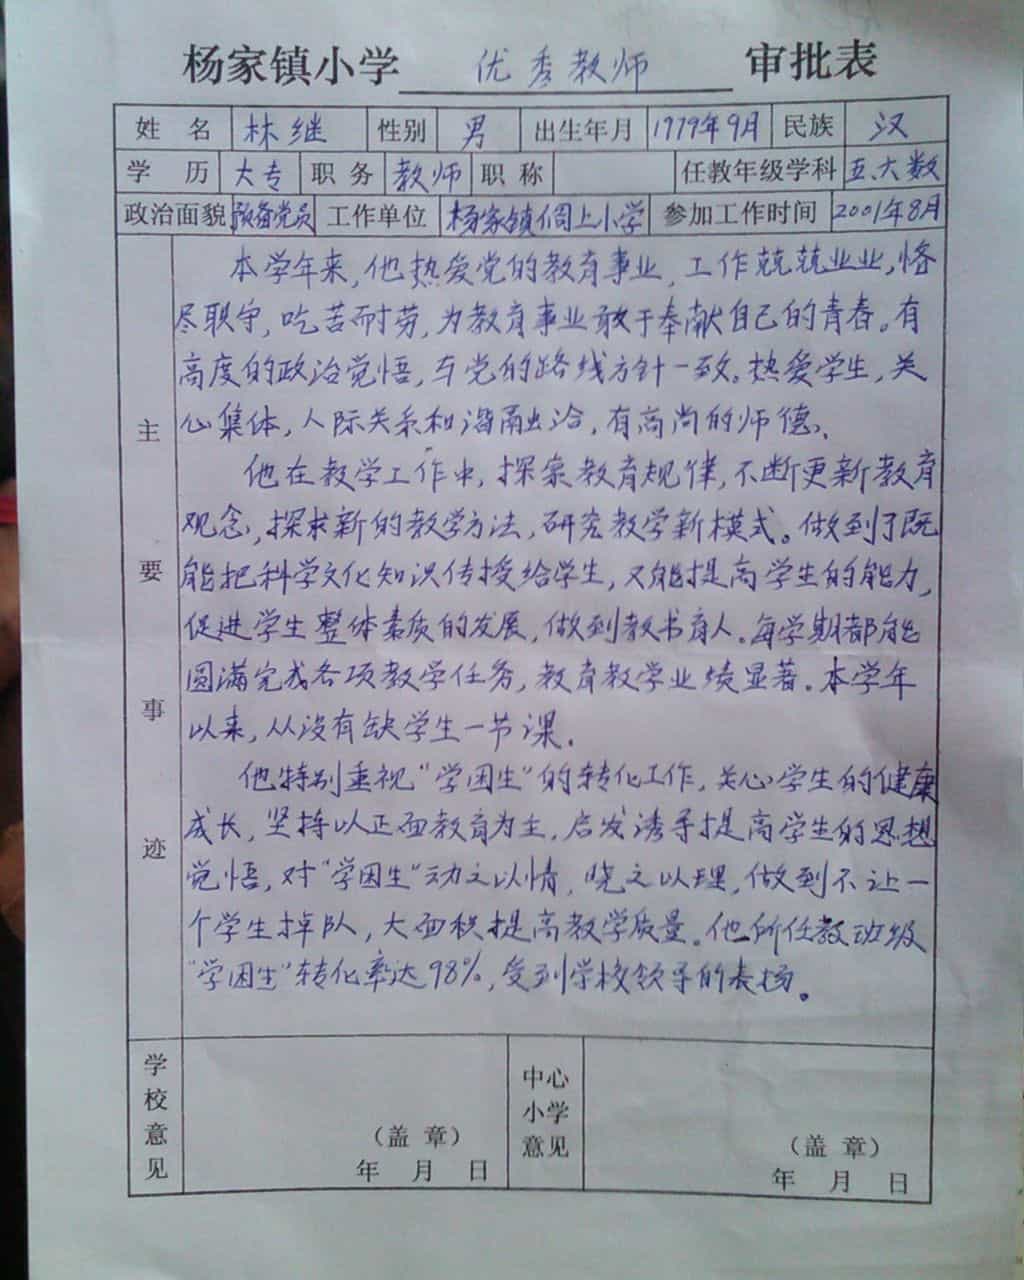 杨家镇小学 优秀教师 审批表
姓 名 林继 性别 男 出生年月 1979年9月 民族 汉
学 历 大专 职务 教师 职称 任教年级学科 五、六数
政治面貌 预备党员 工作单位 杨家镇倜上小学 参加工作时间 2001年8月
主要事迹
本学年来,他热爱党的教育事业,工作兢兢业业,恪
尽职守,吃苦耐劳,为教育事业敢于奉献自己的青春。有
高度的政治觉悟,与党的路线方针一致。热爱学生,关
心集体,人际关系和谐融洽,有高尚的师德。
他在教学工作中,探索教育规律,不断更新教育
观念,探求新的教学方法,研究教学新模式。做到了既
能把科学文化知识传授给学生,又能提高学生的能力,
促进学生整体素质的发展,做到教书育人。每学期都能
圆满完成各项教学任务,教育教学业绩显著。本学年
以来,从没有缺学生一节课.
他特别重视“学困生”的转化工作,关心学生的健康
成长,坚持以正面教育为主,启发诱导提高学生的思想
觉悟,对“学困生”动之以情,晓之以理,做到不让一
个学生掉队,大面积提高教学质量。他所任教班级
“学困生”转化率达98%,受到学校领导的表扬。
学校意见 (盖 章) 年 月 日
中心小学意见 (盖 章) 年 月 日